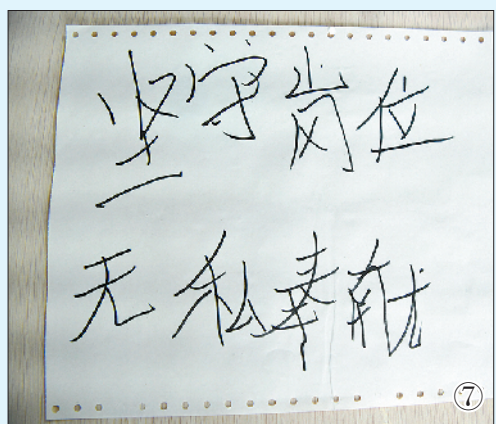 坚守岗位
无私奉献
⑦